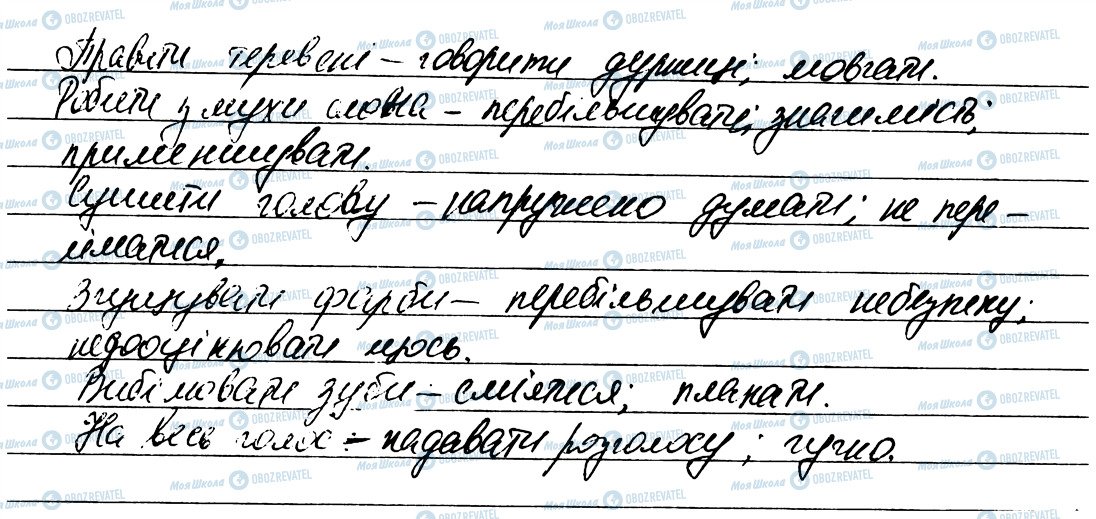 Правити теревені – говорити дурниці; мовчати.
Робити з мухи слона – перебільшувати; значимість;
применшувати.
Сушити голову – напружено думати; не пере-
йматися.
Згущувати фарби – перебільшувати небезпеку;
недооцінювати щось.
Вибілювати зуби – сміятися; плакати.
На весь голос – надавати розголосу; гучно.